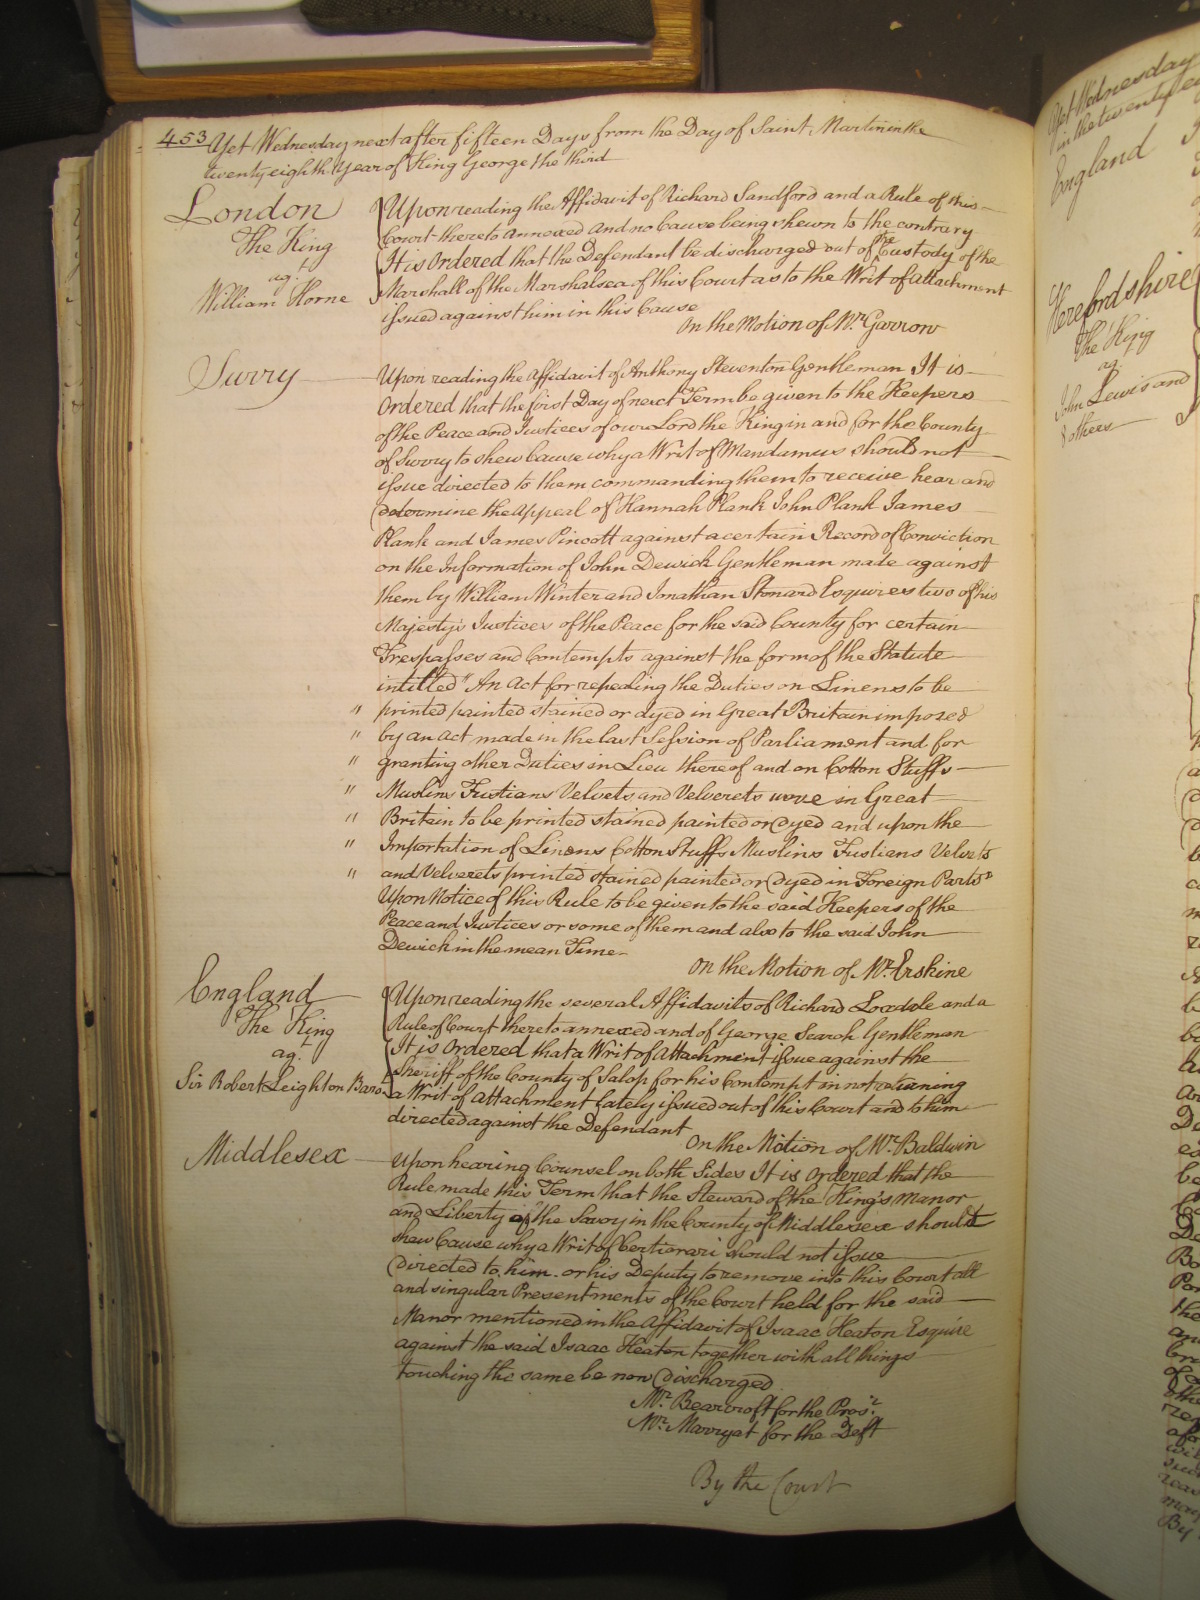 453 Yet Wednesday next after fifteen Days from the Day of Saint Martin in the
twenty eighth Year of King George the third
London
The King
agt
William Horne
Upon reading the Affidavit of Richard Sandford and a Rule of this
Court thereto annexed and no Cause being shewn to the contrary
It is Ordered that the Defendant be discharged out of the Custody of the
Marshall of the Marshalsea of this Court as to the Writ of Attachment
issued against him in this Cause
On the Motion of Mr. Garrow
Surry
Upon reading the Affidavit of Anthony Steventon Gentleman It is
Ordered that the first Day of next Term be given to the Keepers
of the Peace and Justices of our Lord the King in and for the County
of Surry to shew Cause why a Writ of Mandamus should not
issue directed to them commanding them to receive hear and
determine the Appeal of Hannah Plank John Plank James
Plank and James Pincott against a certain Record of Conviction
on the Information of John Dewick Gentleman made against
them by William Winter and Jonathan Stonard Esquires two of his
Majesty's Justices of the Peace for the said County for certain
Trespasses and Contempts against the form of the Statute
intitled "An Act for repealing the Duties on Linens to be
" printed painted stained or dyed in Great Britain imposed
" by an Act made in the last Session of Parliament and for
" granting other Duties in Lieu thereof and on Cotton Stuffs
" Muslins Fustians Velvets and Velverets wove in Great
" Britain to be printed stained painted or dyed and upon the
" Importation of Linens Cotton Stuffs Muslins Fustians Velvets
" and Velverets printed stained painted or dyed in Foreign Parts"
Upon Notice of this Rule to be given to the said Keepers of the
Peace and Justices or some of them and also to the said John
Dewick in the mean Time
On the Motion of Mr. Erskine
England
The King
agt
Sir Robert Leighton Baront
Upon reading the several Affidavits of Richard Loxdale and a
Rule of Court thereto annexed and of George Search Gentleman
It is Ordered that a Writ of Attachment issue against the
Sheriff of the County of Salop for his Contempt in not returning
a Writ of Attachment lately issued out of this Court and to him
directed against the Defendant
On the Motion of Mr. Baldwin
Middlesex
Upon hearing Counsel on both Sides It is Ordered that the
Rule made this Term that the Steward of the King's Manor
and Liberty of the Savoy in the County of Middlesex should
shew Cause why a Writ of Certiorari should not issue
directed to him or his Deputy to remove into this Court all
and singular Presentments of the Court held for the said
Manor mentioned in the Affidavit of Isaac Heaton Esquire
against the said Isaac Heaton together with all things
touching the same be now discharged
Mr. Bearcroft for the Prosr.
Mr. Marryat for the Deft
By the Court
Yet Wednesday
in the twenty
England
Herefordshire
The King
agt
John Lewis and
others